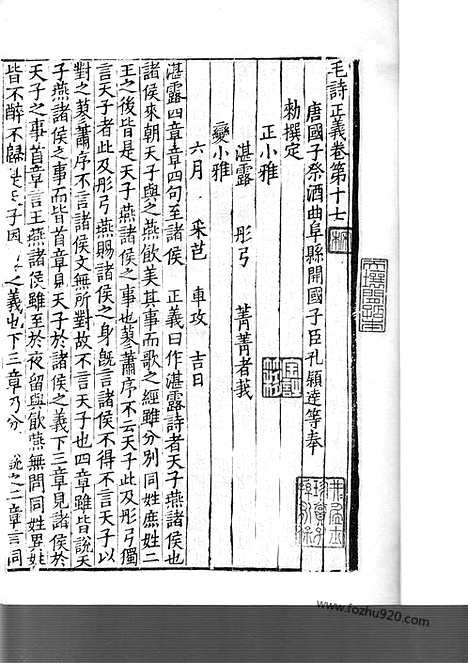 毛詩正義卷第十七
唐國子祭酒曲阜縣開國子臣孔穎達等奉
勑撰定
正小雅
湛露 彤弓 菁菁者莪
變小雅
六月 采芑 車攻 吉日
湛露四章章四句至諸侯 正義曰作湛露詩者天子燕諸侯也
諸侯來朝天子與之燕飲美其事而歌之經雖分別同姓庶姓二
王之後皆是天子燕諸侯之事也蓼蕭序不云天子此及彤弓獨
言天子者此及彤弓燕賜諸侯之身旣言諸侯不得不言天子以
對之蓼蕭序不言諸侯文無所對故不言天子也四章雖皆說天
子燕諸侯之事而皆首章見天子於諸侯之義下三章見諸侯於
天子之事首章言王燕諸侯雖至於夜留與飲燕無問同姓異姓
皆不醉不歸是天子因 之義也下三章乃分 說之二章言同
www.fozhu920.com